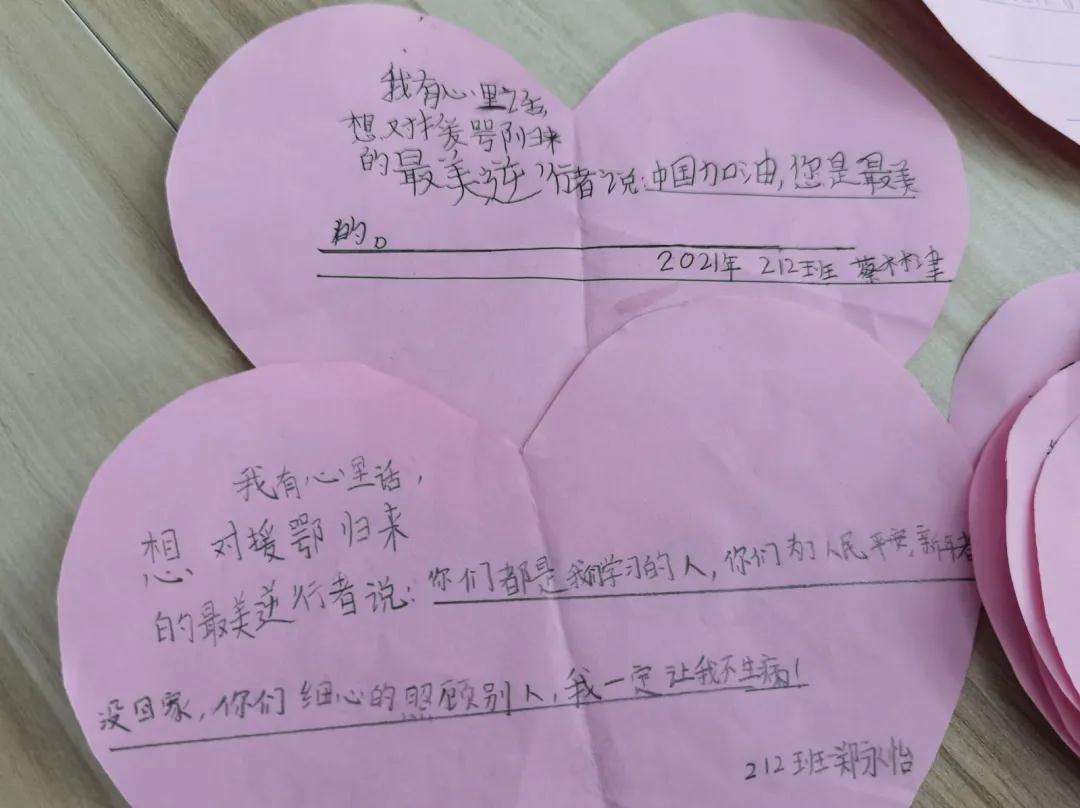 我有心里话,
想对援鄂归来
的最美逆行者说:中国加油,您是最美
的。
2021年 212班 蔡林津
我有心里话,
想对援鄂归来
的最美逆行者说:你们都是我们学习的人,你们为了人民平安,新年者
没回家,你们细心的照顾别人,我一定让我不生病!
212班郑永怡